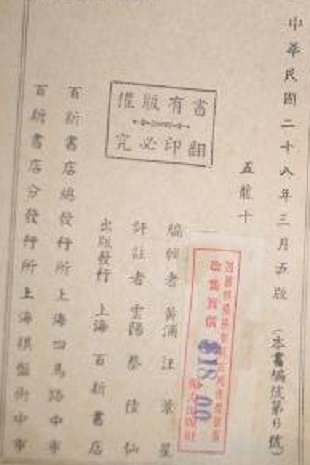 中華民國二十八年三月五版 (本書編號第6號)
五龍十
書有版權
翻印必究
$18.00
編輯者 黃浦汪
評註者 雲陽蔡陸仙
出版發行 上海百新書店
百新書店總發行所 上海四馬路中市
百新書店分發行所 上海棋盤街中市